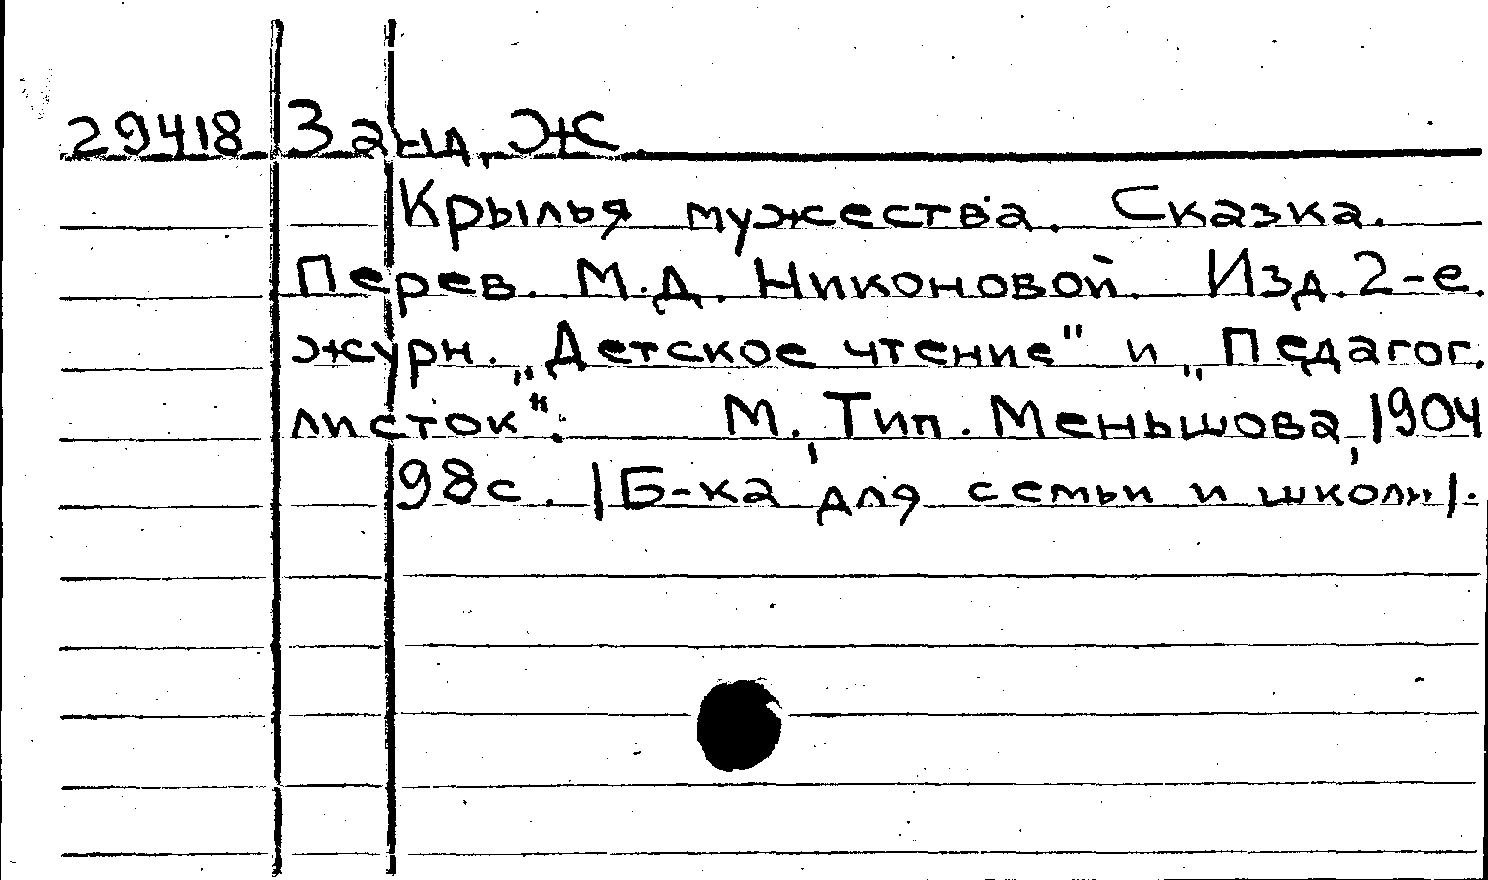 29418 Занд, Ж.
Крылья мужества. Сказка.
Перев. М.Д. Никоновой. Изд. 2-е.
журн. „Детское чтение" и „Педагог.
листок". М., Тип. Меньшова, 1904
98с. |Б-ка для семьи и школы|.